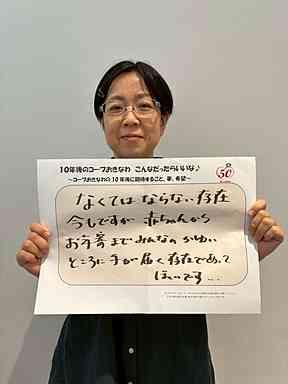 10年後のコープおきなわ こんなだったらいいな♪
～コープおきなわの10年後に期待すること、夢、希望～
50
なくてはならない存在
今もですが 赤ちゃんから
お年寄までみんなのかゆい
ところに手が届く存在であって
ほしいです…